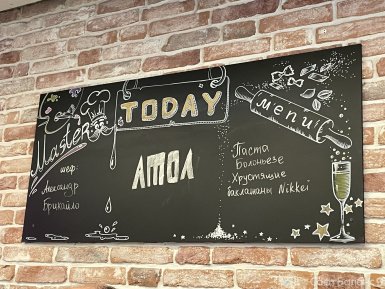 Master
шеф:
Александр
Брикайло
TODAY
АТОЛ
menu
Паста
Болоньезе
Хрустящие
баклажаны Nikkei